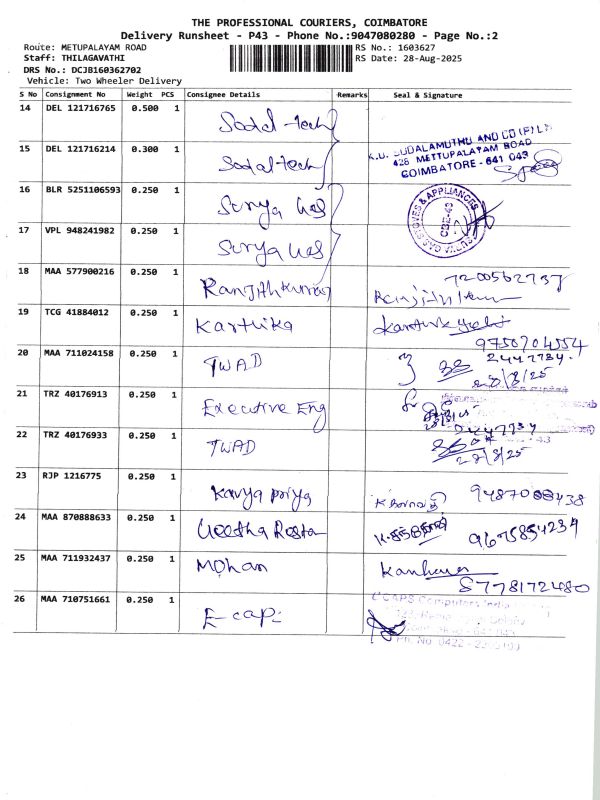 THE PROFESSIONAL COURIERS, COIMBATORE
Delivery Runsheet - P43 - Phone No.:9047080280 - Page No.:2
Route: METUPALAYAM ROAD RS No.: 1603627
Staff: THILAGAVATHI RS Date: 28-Aug-2025
DRS No.: DCJB160362702
Vehicle: Two Wheeler Delivery
S No Consignment No Weight PCS Consignee Details Remarks Seal & Signature
14 DEL 121716765 0.500 1 Sodal-tech
15 DEL 121716214 0.300 1 Sodal-tech
K.U. SUDALAMUTHU AND CO (P) LTD
426 METTUPALAYAM ROAD
COIMBATORE - 641 043
16 BLR 5251106593 0.250 1 Surya Gas
GAS STOVES & APPLIANCES
SURYA
CBE-43
17 VPL 948241982 0.250 1 Surya Gas
18 MAA 577900216 0.250 1 Ranjithkumar 7200562737
19 TCG 41884012 0.250 1 Karthika
9750704554
20 MAA 711024158 0.250 1 TWAD 2447734
28/8/25
21 TRZ 40176913 0.250 1 Executive Eng
22 TRZ 40176933 0.250 1 TWAD 2447734
28/8/25
23 RJP 1216775 0.250 1 Kavya priya
24 MAA 870888633 0.250 1 Geetha Rosta 9675854234
25 MAA 711932437 0.250 1 Mohan
8778172480
26 MAA 710751661 0.250 1 E-cap